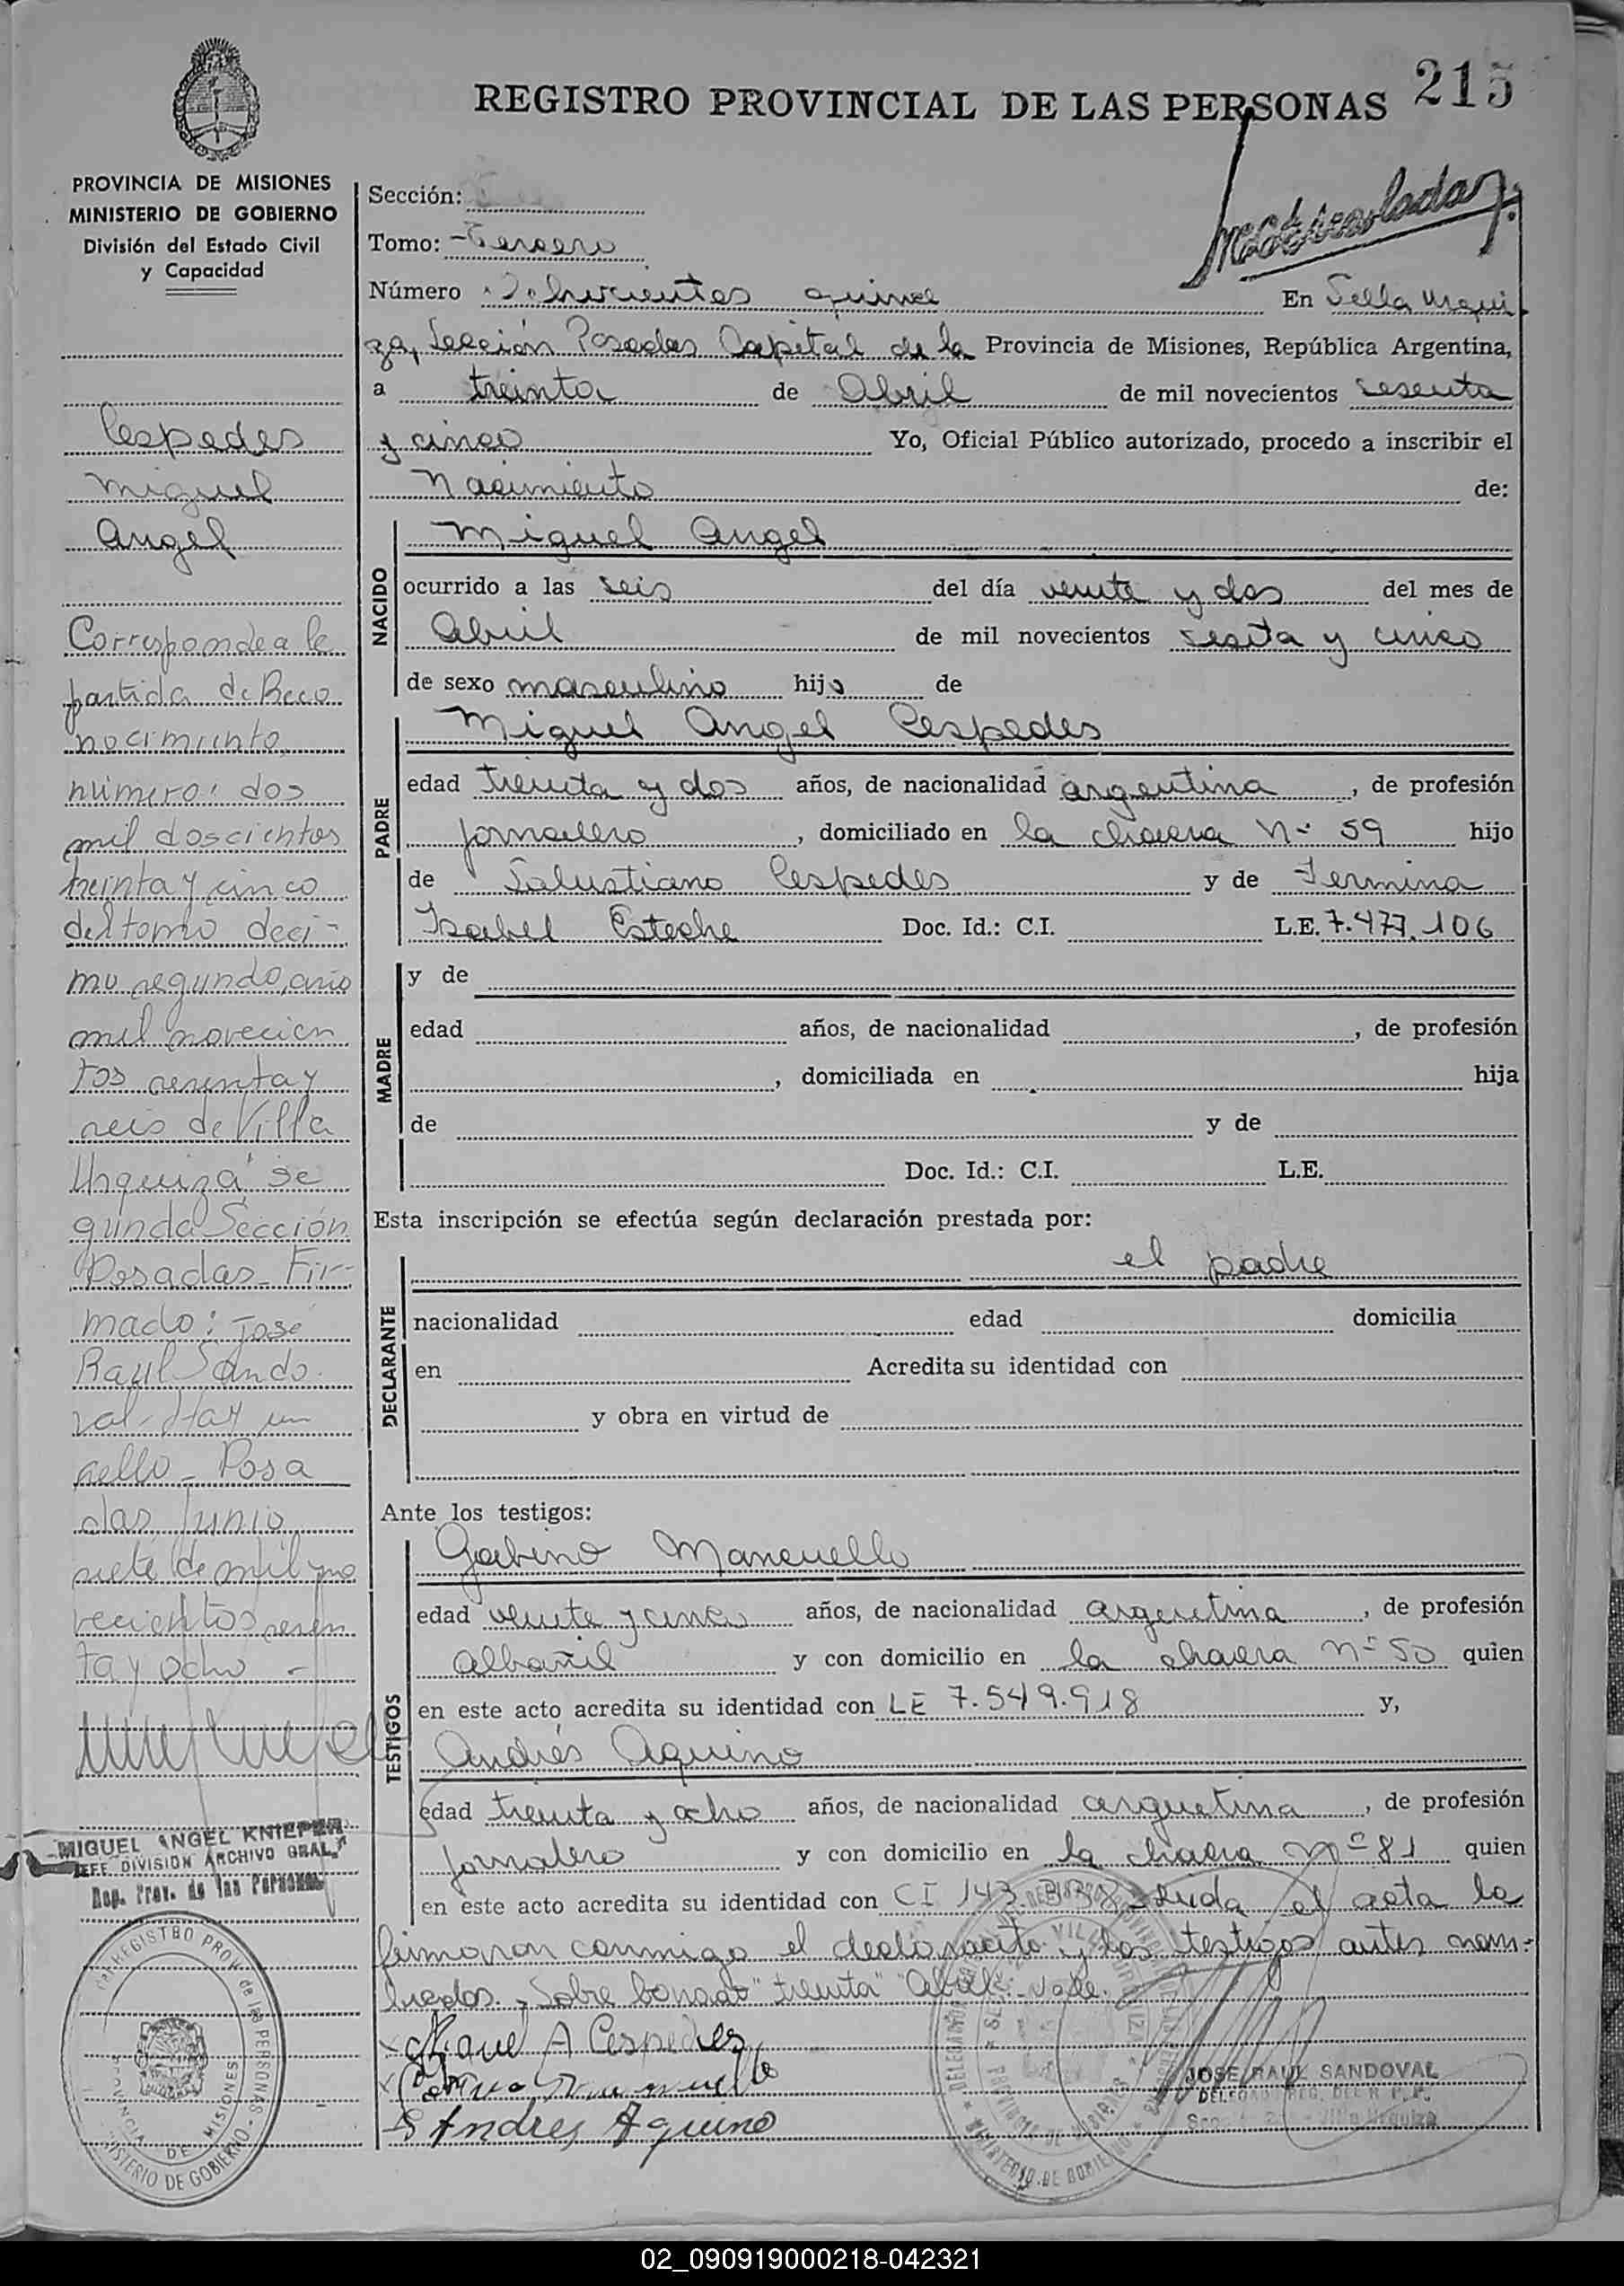 REGISTRO PROVINCIAL DE LAS PERSONAS 215
PROVINCIA DE MISIONES
MINISTERIO DE GOBIERNO
División del Estado Civil
y Capacidad
Matriculado
Sección:
Tomo: Tercero
Número quince En Villa Urqui
za, Sección Posadas Capital de la Provincia de Misiones, República Argentina,
a treinta de Abril de mil novecientos sesenta
y cinco Yo, Oficial Público autorizado, procedo a inscribir el
Nacimiento de:
NACIDO
Miguel Angel
ocurrido a las seis del día veinte y dos del mes de
Abril de mil novecientos y cinco
de sexo masculino hijo de
PADRE
Miguel Angel Cespedes
edad treinta y dos años, de nacionalidad argentina, de profesión
jornalero, domiciliado en la chacra Nº 59 hijo
de Salustiano Cespedes y de Fermina
Isabel Esteche Doc. Id.: C.I. L.E. 7.477.106
MADRE
y de
edad años, de nacionalidad , de profesión
, domiciliada en hija
de y de
Doc. Id.: C.I. L.E.
Esta inscripción se efectúa según declaración prestada por:
DECLARANTE
el padre
nacionalidad edad domicilia
en Acredita su identidad con
y obra en virtud de
Ante los testigos:
TESTIGOS
Gabino Mancuello
edad veinte y cinco años, de nacionalidad argentina, de profesión
albañil y con domicilio en la chacra Nº 50 quien
en este acto acredita su identidad con LE 7.549.918 y,
Andrés Aquino
edad treinta y ocho años, de nacionalidad argentina, de profesión
jornalero y con domicilio en la chacra Nº 81 quien
en este acto acredita su identidad con CI 143. Leida el acta la
firmaron conmigo el declarante y los testigos antes nom-
brados. Sobre borrado "treinta" "Abril". Vale.
Miguel A Cespedes
Gabino Mancuello
Andres Aquino
JOSE RAUL SANDOVAL
Cespedes
Miguel
Angel
Corresponde a la
partida de Reco
nocimiento,
número: dos
mil doscientos
treinta y cinco
del tomo deci-
mo segundo, año
mil novecien
tos sesenta y
seis de Villa
Urquiza se
gunda Sección
Posadas_ Fir-
mado: José
Raul Sando
val- Hay un
sello_ Posa
das Junio
siete de mil no
vecientos sesen
ta y ocho -
MIGUEL ANGEL KNIEPER
JEFE DIVISION ARCHIVO GRAL.
Rep. Prov. de las Personas
REGISTRO PROV. de las PERSONAS
PROVINCIA DE MISIONES
MINISTERIO DE GOBIERNO
02_090919000218-042321